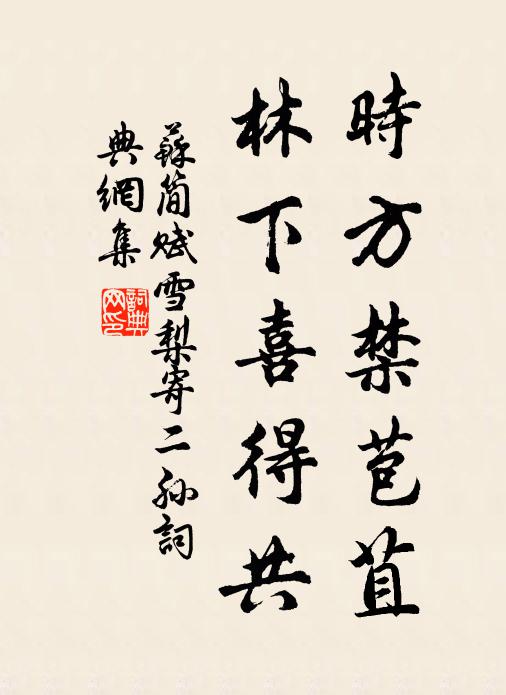 時方禁苞苴
林下喜得共
蘇簡賦雪梨寄二孫詞
典網集
詞典
网印